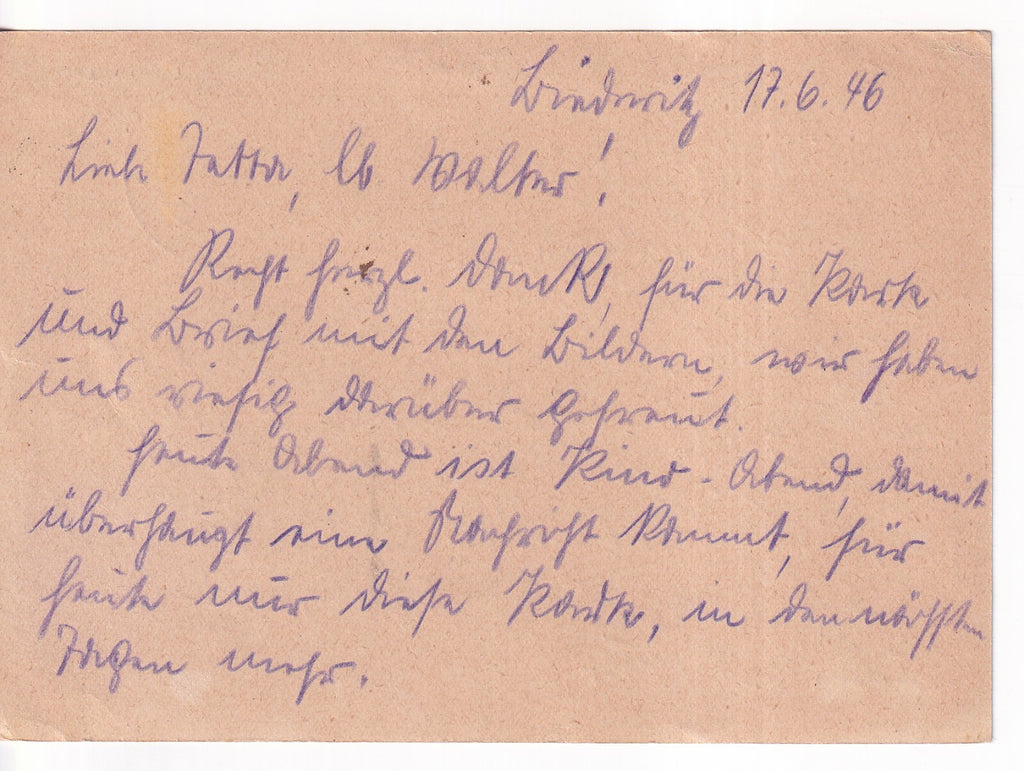 Biederitz 17.6.46
Liebe Jutta, lb Walter!
Recht herzl. Dank, für die Karte
und Brief mit den Bildern, wir haben
uns riesig darüber gefreut.
Heute Abend ist Kino-Abend, damit
überhaupt eine Nachricht kommt, für
heute nur diese Karte, in den nächsten
Tagen mehr.